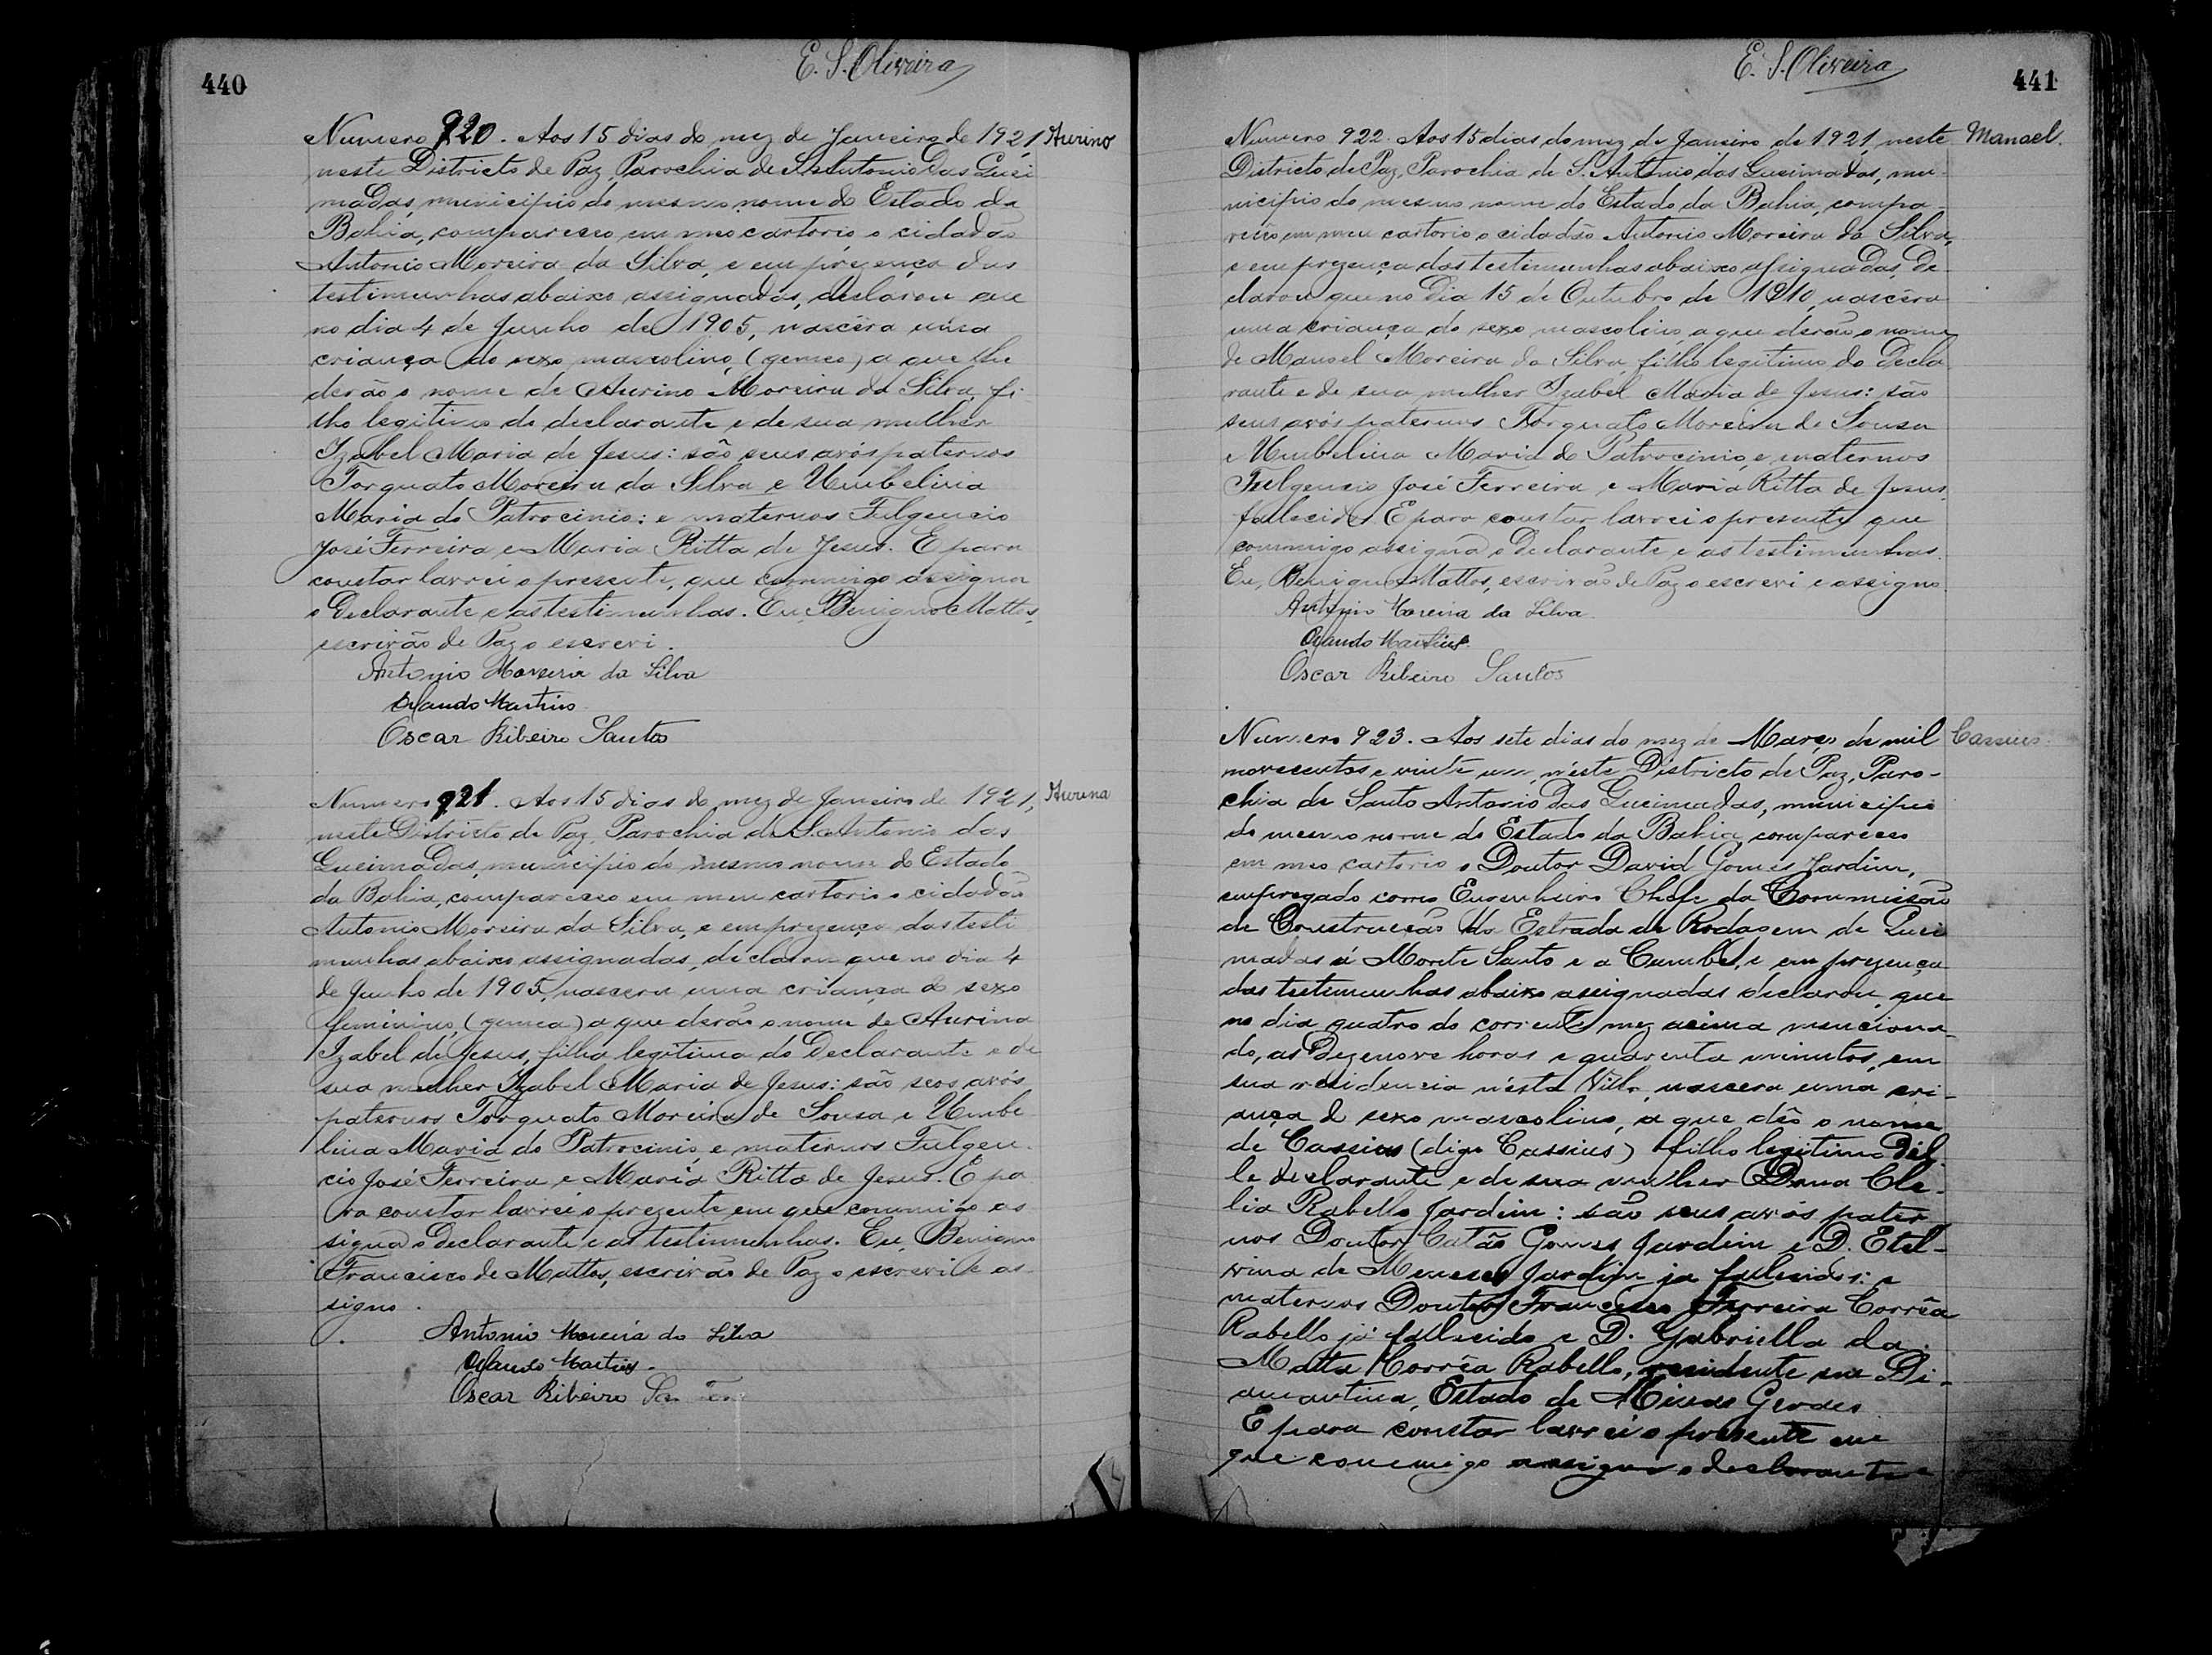 440
E. S. Oliveira
Numero 920. Aos 15 dias do mez de Janeiro de 1921 Aurino
neste Districto de Paz, Parochia de S. Antonio das Quei
madas, municipio do mesmo nome do Estado da
Bahia, compareceo em meo cartorio o cidadão
Antonio Moreira da Silva, e em prezença das
testimunhas abaixo assignadas, declarou que
no dia 4 de Junho de 1905, nascêra uma
criança do sexo mascolino, (gemeo) a que lhe
derão o nome de Aurino Moreira da Silva, fi
lho legitimo do declarante e de sua mulher
Izabel Maria de Jesus: são seus avós paternos
Torquato Moreira da Silva e Umbelina
Maria do Patrocinio: e maternos Fulgencio
José Ferreira e Maria Ritta de Jesus. E para
constar lavrei o presente, que commigo assigna
o Declarante e as testimunhas. Eu, Benigno Mattos,
escrivão de Paz o escrevi.
Antonio Moreira da Silva
Orlando Martins
Oscar Ribeiro Santos
Numero 921. Aos 15 dias do mez de Janeiro de 1921, Aurina
neste Districto de Paz, Parochia de S. Antonio das
Queimadas, municipio do mesmo nome do Estado
da Bahia, compareceo em meu cartorio o cidadão
Antonio Moreira da Silva, e em prezença das testi
munhas abaixo assignadas, declarou que no dia 4
de Junho de 1905, nascera uma criança do sexo
feminino, (gemea) a que derão o nome de Aurina
Izabel de Jesus, filha legitima do Declarante e de
sua mulher Izabel Maria de Jesus: são seos avós
paternos Torquato Moreira de Sousa e Umbe
lina Maria do Patrocinio, e maternos Fulgen
cio José Ferreira e Maria Ritta de Jesus. E pa
ra constar lavrei o prezente, em que commigo as
signa o Declarante e as testimunhas. Eu, Benigno
Francisco de Mattos, escrivão de Paz o escrevi e as
signo.
Antonio Moreira da Silva
Orlando Martins
Oscar Ribeiro Santos
441
E. S. Oliveira
Numero 922. Aos 15 dias do mez de Janeiro de 1921, neste Manoel.
Districto de Paz, Parochia de S. Antonio das Queimadas, mu-
nicipio do mesmo nome do Estado da Bahia, compa-
receo em meu cartorio o cidadão Antonio Moreira da Silva,
e em prezença das testimunhas abaixo assignadas, De-
clarou que no Dia 15 de Outubro de 1910, nascêra
uma criança do sexo mascolino, a que derão o nome
de Manoel Moreira da Silva, filho legitimo do Decla
rante e de sua mulher Izabel Maria de Jesus: são
seus avós paternos Torquato Moreira de Sousa
e Umbelina Maria do Patrocinio, e maternos
Fulgencio José Ferreira e Maria Ritta de Jesus,
fallecidos. E para constar lavrei o presente que
commigo assigna o Declarante e as testimunhas.
Eu, Benigno Mattos, escrivão de Paz o escrevi e assigno.
Antonio Moreira da Silva
Orlando Martins
Oscar Ribeiro Santos
Numero 923. Aos sete dias do mez de Março de mil Cassius.
novecentos e vinte um, n'éste Districto de Paz, Paro-
chia de Santo Antonio das Queimadas, municipio
do mesmo nome do Estado da Bahia, compareceo
em meo cartorio o Doutor David Gomes Jardim,
empregado como Engenheiro Chefe da Commissão
de Construcção da Estrada de Rodagem de Quei
madas á Monte Santo e a Cumbe, e em prezença
das testemunhas abaixo assignadas declarou que
no dia quatro do corrente mez acima menciona-
do, as Dezenove horas e quarenta minutos, em
sua residencia n'ésta Villa, nascera uma cri-
ança do sexo mascolino, a que dêo o nome
de Cassius (digo Cassius) filho legitimo Del
le declarante e de sua mulher Dona Cle-
lia Rabello Jardim: são seus avós pater
nos Doutor Catão Gomes Jardim e D. Etel-
vina de Meneses Jardim ja fallecidos: e
maternos Doutor Francisco Ferreira Corrêa
Rabello já fallecido e D. Gabriella da
Matta Corrêa Rabello, residente em Di-
amantina, Estado de Minas Geraes
E para constar lavrei o presente em
que comemigo assigna o declarante e